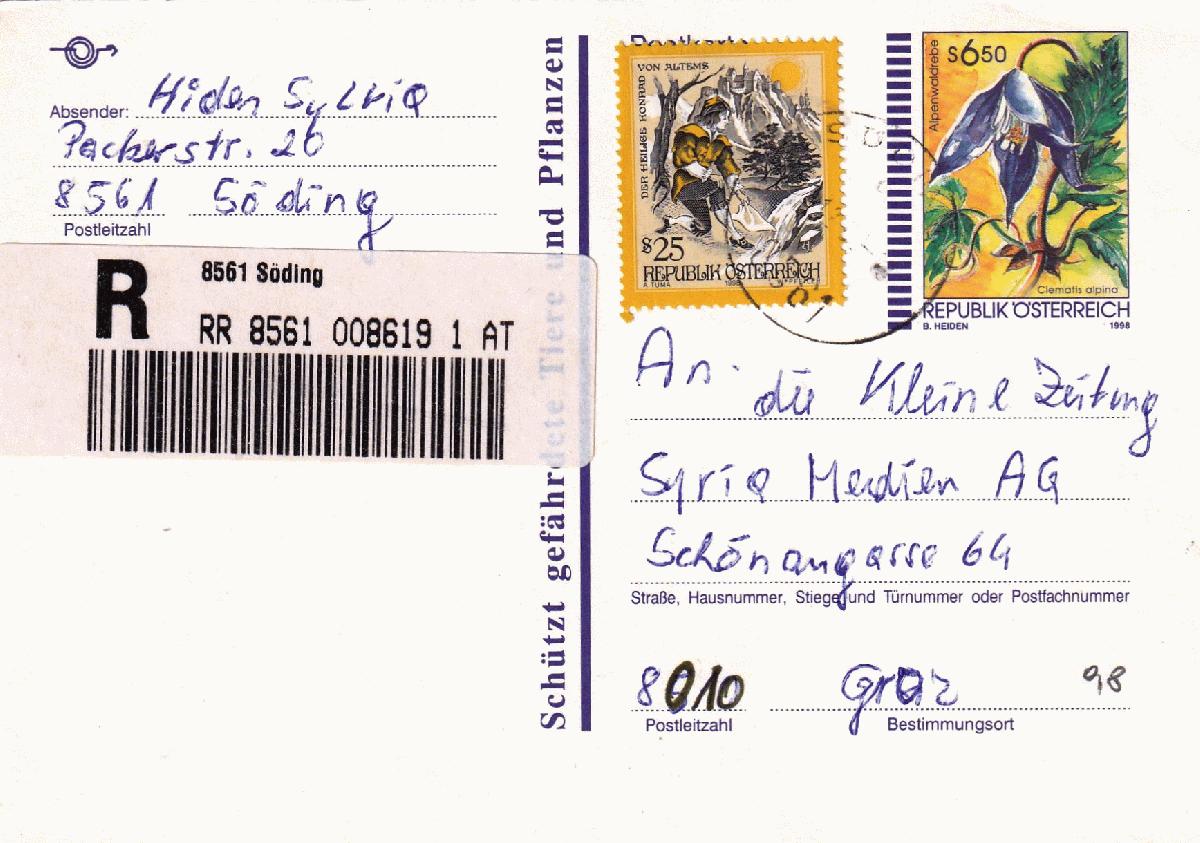 Postkarte
Absender: Hiden Sylvia
Packerstr. 20
8561 Söding
Postleitzahl
R
8561 Söding
RR 8561 008619 1 AT
Schützt gefährdete Tiere und Pflanzen
DER HEILIGE KONRAD
VON ALTEMS
S25
REPUBLIK ÖSTERREICH
A. TUMA
Alpenwaldrebe
S650
Clematis alpina
REPUBLIK ÖSTERREICH
B. HEIDEN 1998
An
die Kleine Zeitung
Syria Medien AG
Schönaugasse 64
Straße, Hausnummer, Stiege und Türnummer oder Postfachnummer
8010 Graz 98
Postleitzahl Bestimmungsort